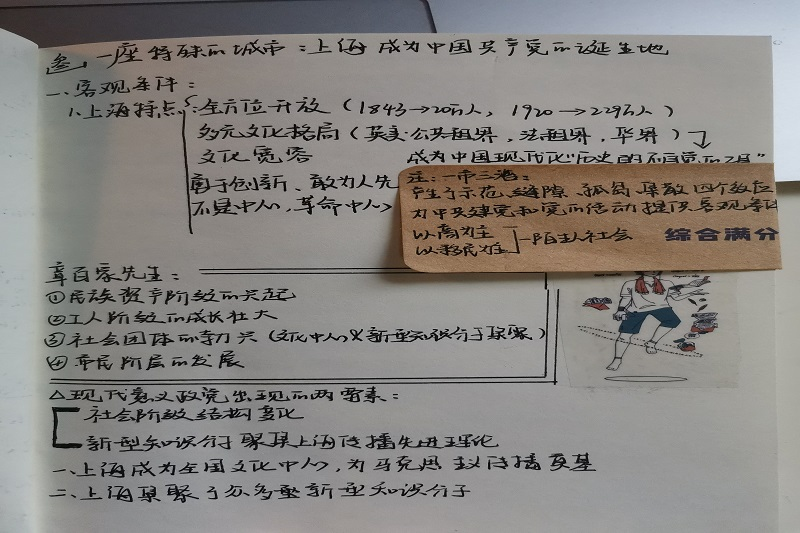 叁 一座特殊的城市：上海成为中国共产党的诞生地
一、客观条件：
1.上海特点：全方位开放（1843→20万人，1920→229万人）
多元文化格局（英美公共租界，法租界，华界）
文化宽容
成为中国现代化"历史的不自觉的工具"
勇于创新、敢为人先
不是中心，革命中心
注：一市三治：
产生了示范、缝隙、孤岛、集散四个效应
为中共建党和党的活动提供客观条件
以商为主
以移民为主
陌生人社会
综合满分
章百家先生：
①民族资产阶级的兴起
②工人阶级的成长壮大
③社会团体的勃兴（文化中心&新型知识分子聚集）
④市民阶层的发展
△现代意义政党出现的两要素：
社会阶级结构变化
新型知识分子聚集上海传播先进理论
一、上海成为全国文化中心，为马克思主义传播奠基
二、上海集聚了众多重新型知识分子